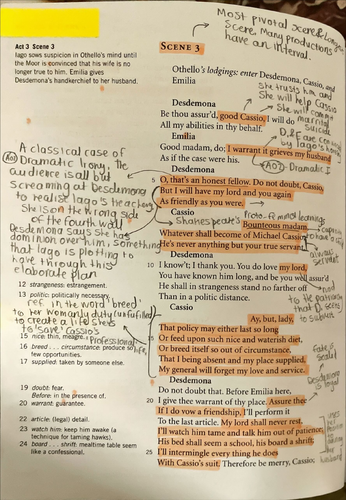 Most pivotal scene & longest
Scene, Many productions
have an interval.
Act 3 Scene 3
Iago sows suspicion in Othello's mind until
the Moor is convinced that his wife is
no longer true to him. Emilia gives
Desdemona's handkerchief to her husband.
SCENE 3
Othello's lodgings: enter Desdemona, Cassio, and
Emilia
She trusts him and
She will help Cassio
She will commit
marriage suicide
Desdemona
Be thou assur'd, good Cassio, I will do
All my abilities in thy behalf.
Emilia
Good madam, do; I warrant it grieves my husband
As if the case were his.
D & E are
by Iago's
AO2 Dramatic I
Desdemona
5 O, that's an honest fellow. Do not doubt, Cassio,
But I will have my lord and you again
As friendly as you were.
A classical case of
AO2 Dramatic Irony, the
audience is all but
Screaming at Desdemona
to realise Iago's treachery
She is on the wrong side
of the fourth wall
Desdemona says she has
dominion over him, something
that Iago is plotting to
have through this
elaborate plan
Cassio
Shakespeare's Proto-feminist leanings
Bounteous madam,
Whatever shall become of Michael Cassio,
He's never anything but your true servant.
always
Desdemona
10 I know't; I thank you. You do love my lord,
You have known him long, and be you well assur'd
He shall in strangeness stand no farther off
Than in a politic distance.
to the patriarch
that D. seems
to submit
12 strangeness: estrangement.
13 politic: politically necessary.
ref. in the word 'breed'
to her womanly duty unfulfilled
to create a life she's
to 'save' Cassio's
Professional life
15 nice: thin, meagre.
16 breed . . . circumstance: produce so
few opportunities.
17 supplied: taken by someone else.
Cassio
Ay, but, lady,
That policy may either last so long
15 Or feed upon such nice and waterish diet,
Or breed itself so out of circumstance,
That I being absent and my place supplied,
My general will forget my love and service.
Desdemona
Do not doubt that. Before Emilia here,
20 I give thee warrant of thy place. Assure thee
If I do vow a friendship, I'll perform it
To the last article. My lord shall never rest.
I'll watch him tame and talk him out of patience;
His bed shall seem a school, his board a shrift;
25 I'll intermingle every thing he does
With Cassio's suit. Therefore be merry, Cassio;
Desdemona
is loyal
19 doubt: fear.
Before: in the presence of.
20 warrant: guarantee.
22 article: (legal) detail.
23 watch him: keep him awake (a
technique for taming hawks).
24 board . . . shrift: mealtime table seem
like a confessional.